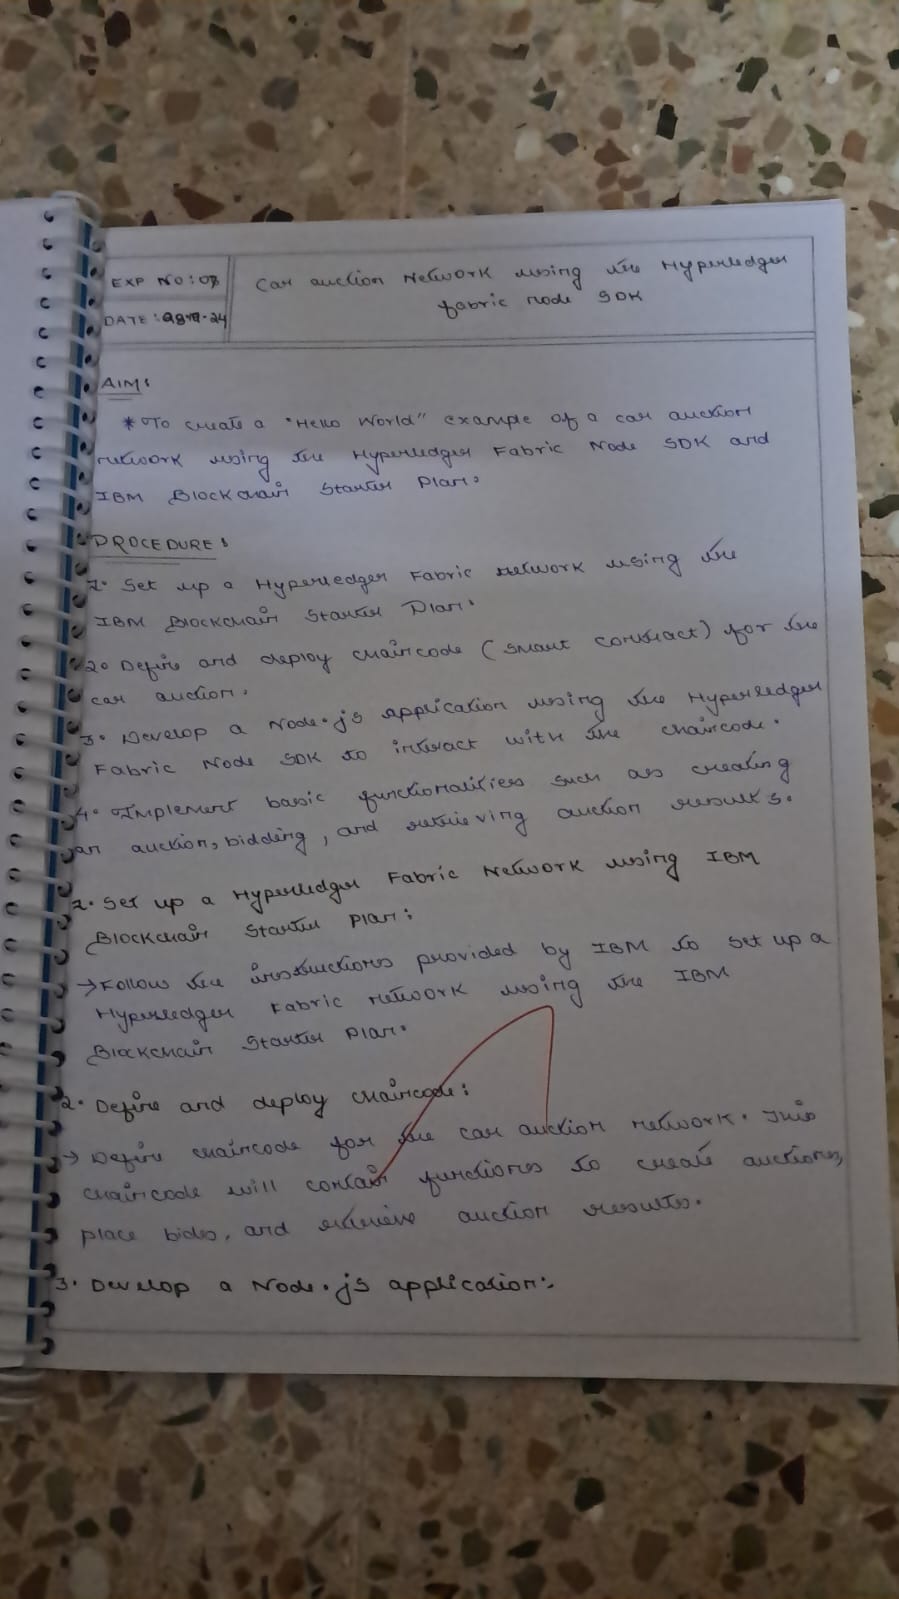 EXP NO: 07
Car auction Network using the Hyperledger
fabric node SDK
DATE:
AIM:
* To create a "Hello World" example of a car auction
network using the Hyperledger Fabric Node SDK and
IBM Blockchain Starter Plan.
PROCEDURE:
1. Set up a Hyperledger Fabric network using the
IBM Blockchain Starter Plan.
2. Define and deploy chaincode (smart contract) for the
car auction.
3. Develop a Node.js application using the Hyperledger
Fabric Node SDK to interact with the chaincode.
4. Implement basic functionalities such as creating
an auction, bidding, and retrieving auction results.
1. Set up a Hyperledger Fabric Network using IBM
Blockchain Starter Plan:
→ Follow the instructions provided by IBM to set up a
Hyperledger Fabric network using the IBM
Blockchain Starter Plan.
2. Define and deploy chaincode:
→ Define chaincode for the car auction network. This
chaincode will contain functions to create auctions,
place bids, and retrieve auction results.
3. Develop a Node.js application: